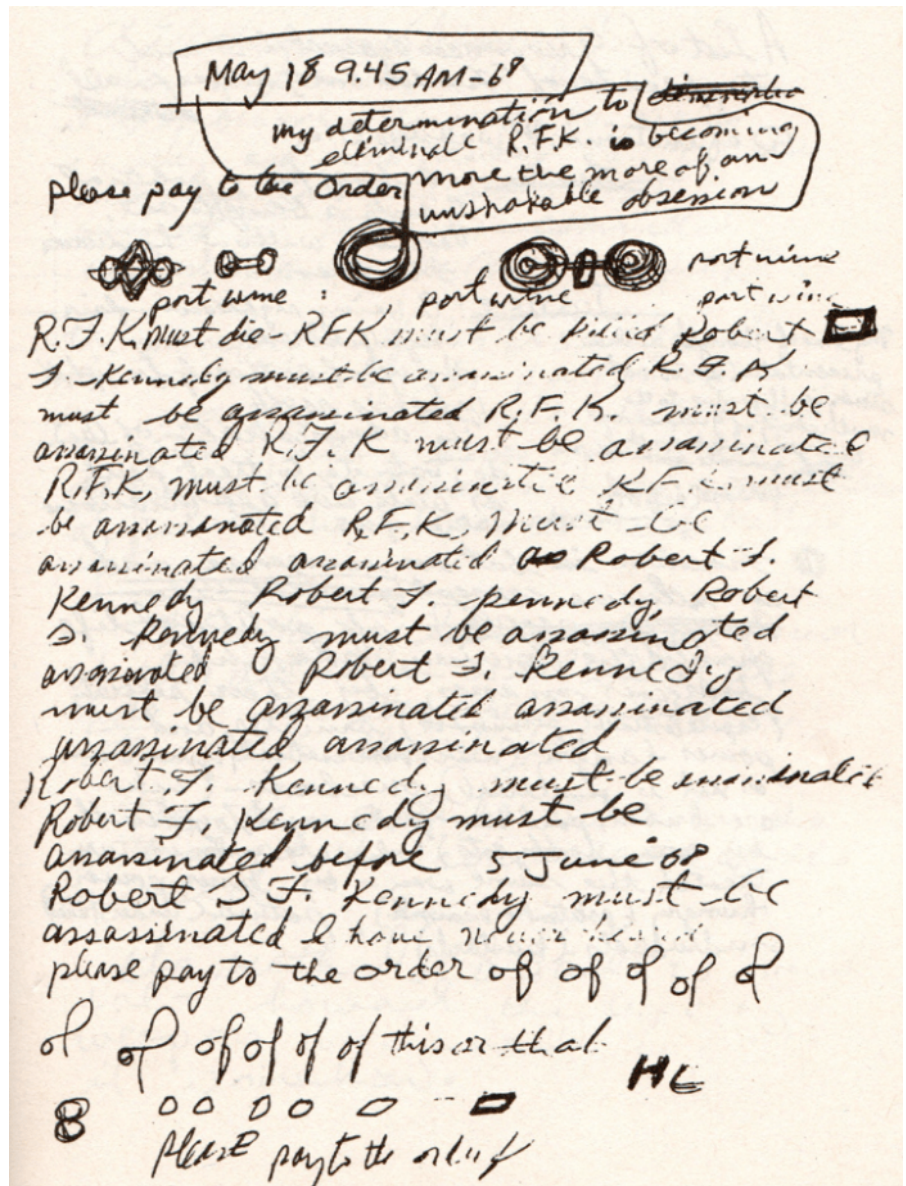 May 18 9.45 AM-68
my determination to
eliminate R.F.K. is becoming
more the more of an
unshakable obsession
please pay to the order
port wine
port wine : port wine port wine
R.F.K. must die - RFK must be killed Robert
F. Kennedy must be assassinated R.F.K
must be assassinated R.F.K. must be
assassinated R.F.K must be assassinated
R.F.K. must be assassinated R.F.K. must
be assassinated R.F.K. must be
assassinated assassinated Robert F.
Kennedy Robert F. Kennedy Robert
F. Kennedy must be assassinated
assassinated Robert F. Kennedy
must be assassinated assassinated
assassinated assassinated
Robert F. Kennedy must be assassinated
Robert F. Kennedy must be
assassinated before 5 June 68
Robert F. Kennedy must be
assassinated I have never heard
please pay to the order of of of of of
of of of of of of this or that
8
please pay to the order of